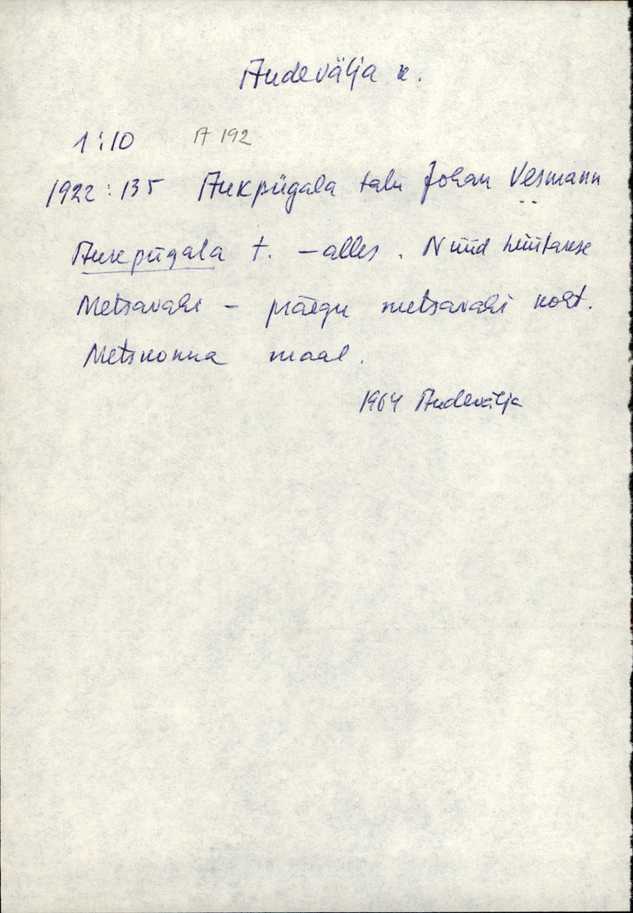 Audevälja k.
1:10 A 192
1922:135 Aukpügala talu Johan Vesmann
Aukpügala t. – alles. Nüüd hüütakse
Metsavahi – praegu metsavahi koht.
Metskonna maal.
1964 Audevälja